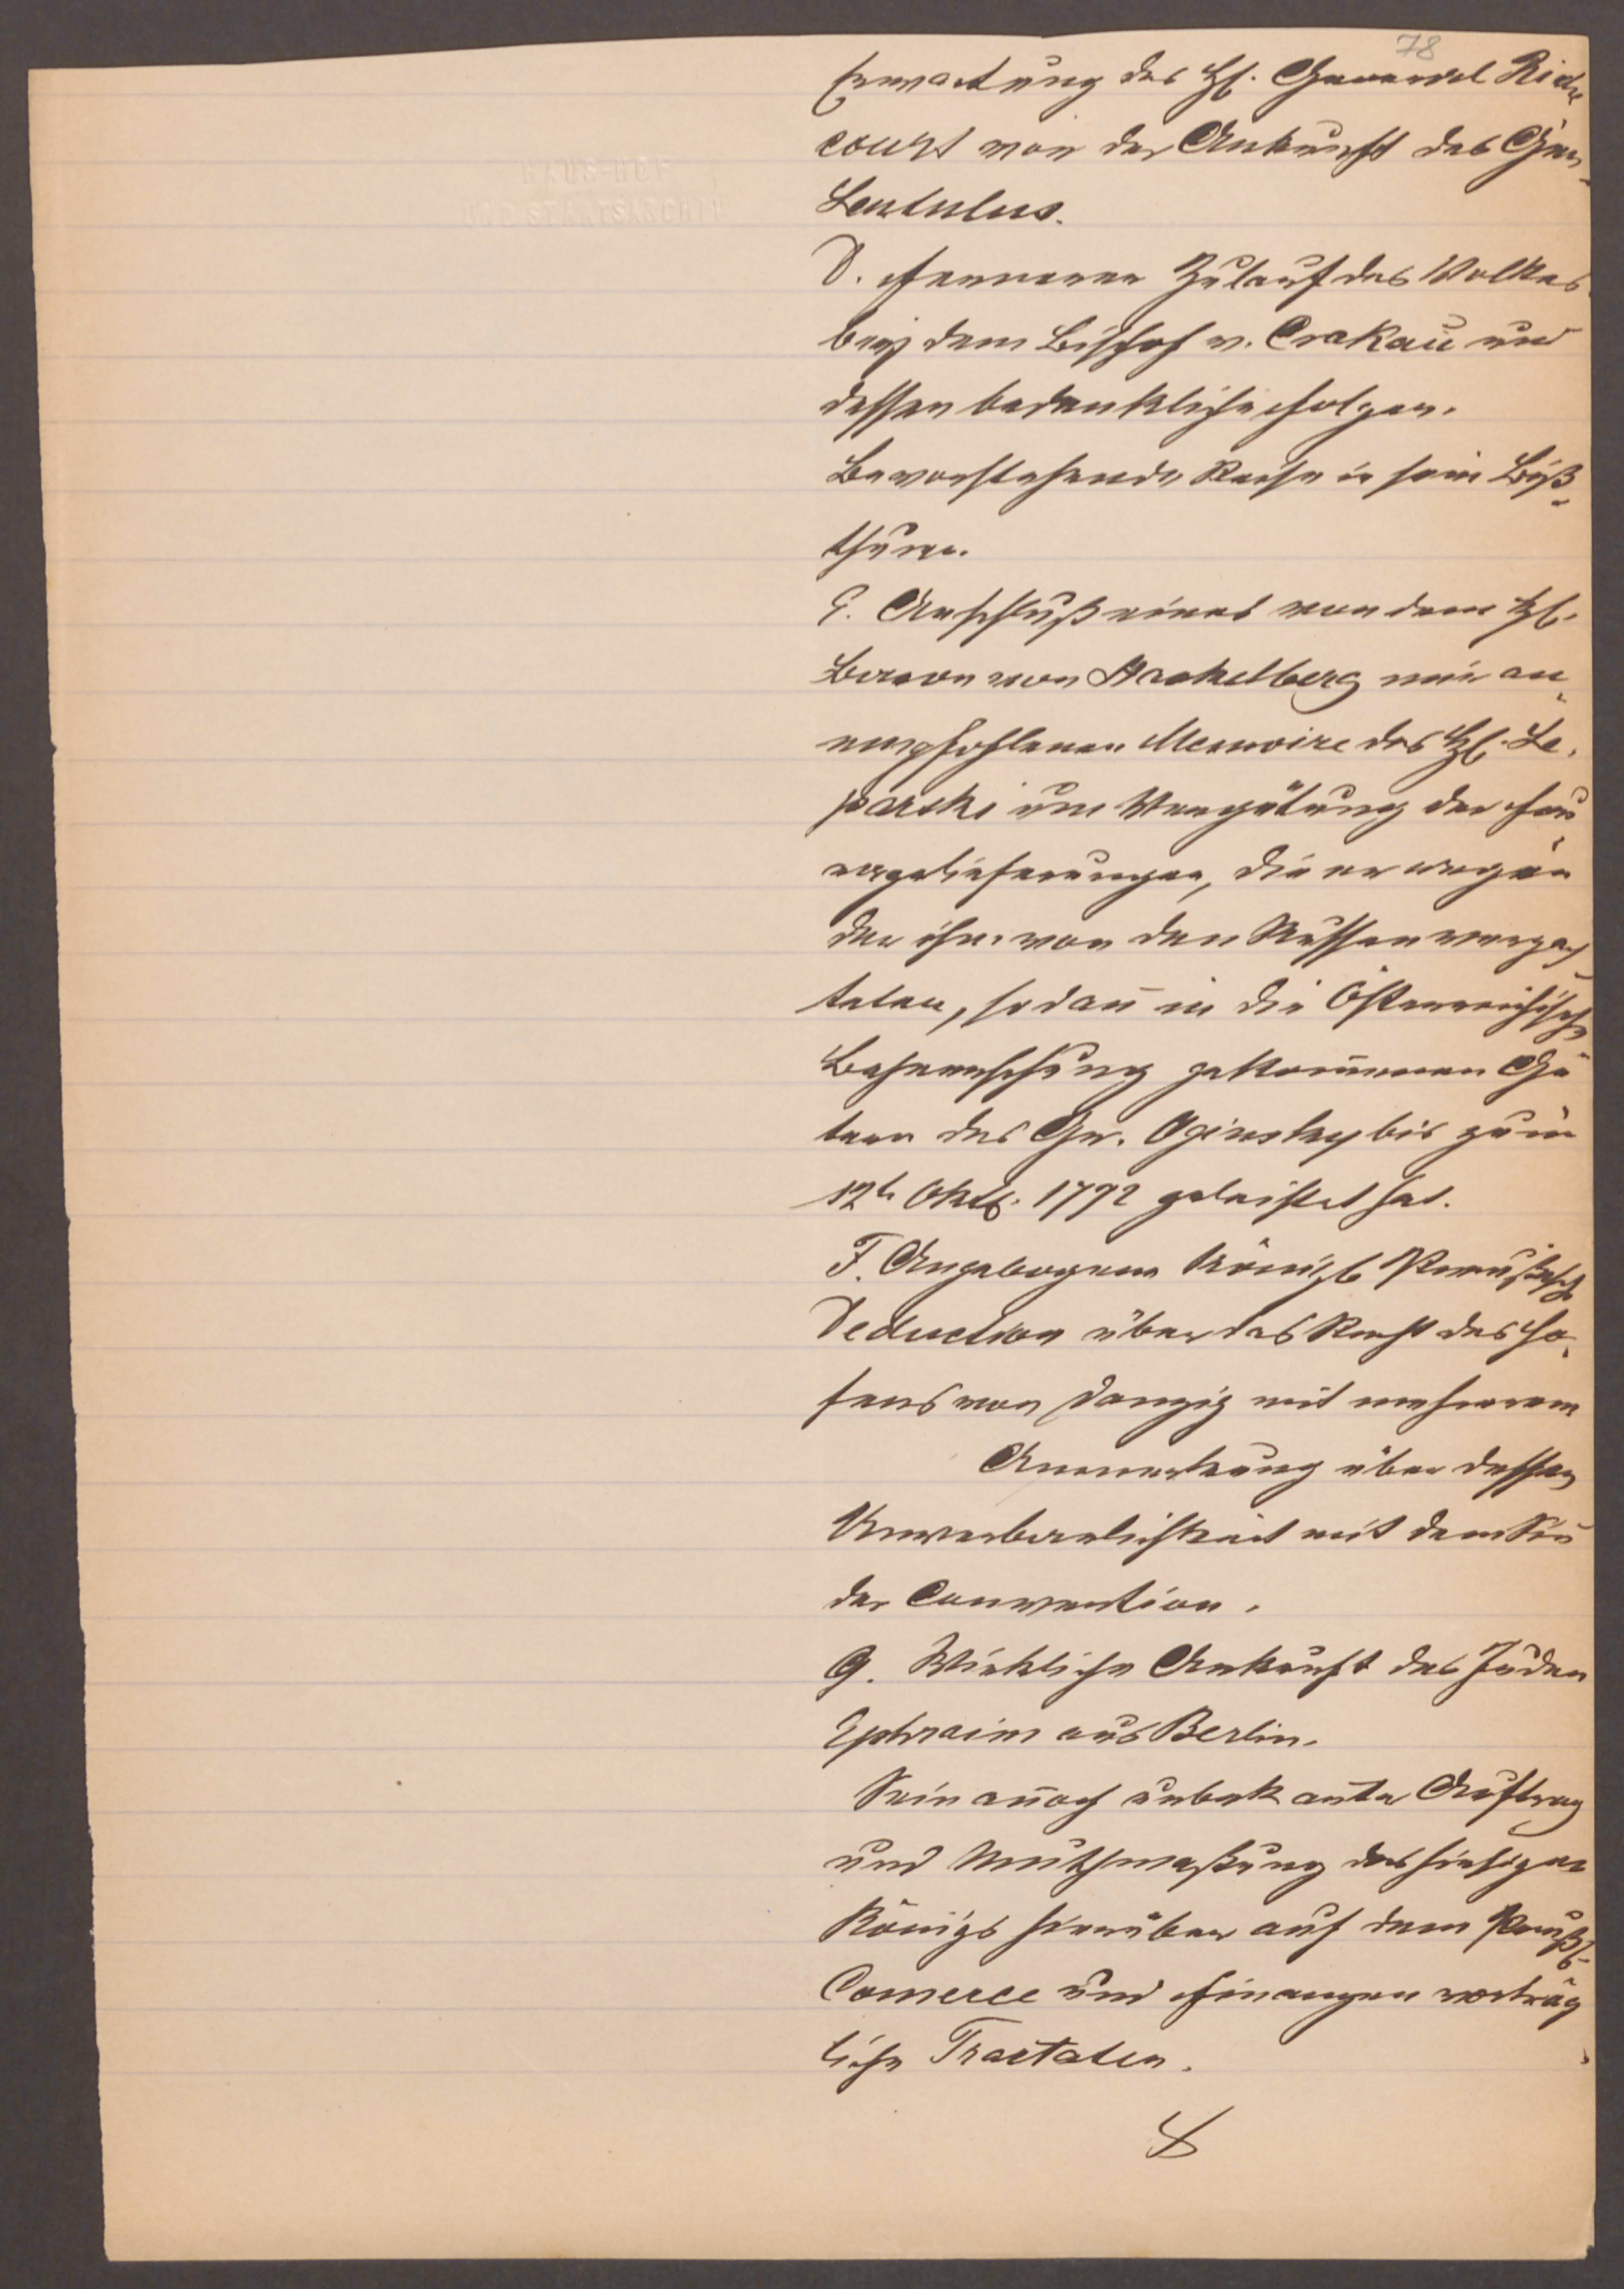 78
Erwartung des H. General Riche
court von der Ankunft des Gen.
Lentulus.
D. Fernerer Zulauf des Volkes
beij dem Bischof v. Crakau und
dessen bedenkliche Folgen.
Bevorstehende Reise in sein Biß-
thum.
E. Anschluß eines von dem H.
Baron von Hackelberg mir an-
empfohlenen Memoire des H. Le-
parski um Vergütung der Fou-
ragelieferungen, die er wegen
der ihm von den Russen verpach-
teten, sodañ in die Österreichische
Beherrschung gekom̄enen Gü-
tern des Gr. Oginsky bis zum
12t Oktb. 1772 geleistet hat.
F. Angebogene Königl Preußische
Deduction über das Recht des Ha-
fens von Danzig mit mehrerem
Anmerkung über dessen
Unvereinbarlichkeit mit dem Sin̄
der Convention.
G. Wirkliche Ankunft des Juden
Ephraim aus Berlin.
Sein añoch unbekañter Auftrag
und Muthmaßung des hiesigen
Königs hierüber auf dem Preuß.
Comerce und Finanzen vorträg-
liche Tractaten.
HAUS- HOF
UND STAATSARCHIV